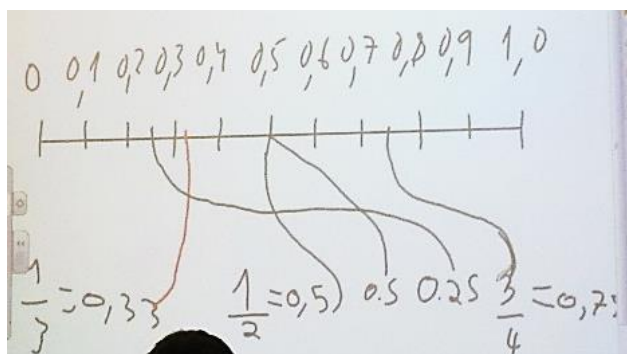 0 0,1 0,2 0,3 0,4 0,5 0,6 0,7 0,8 0,9 1,0
1/3 = 0,33 1/2 = 0,5 0.5 0.25 3/4 = 0,7